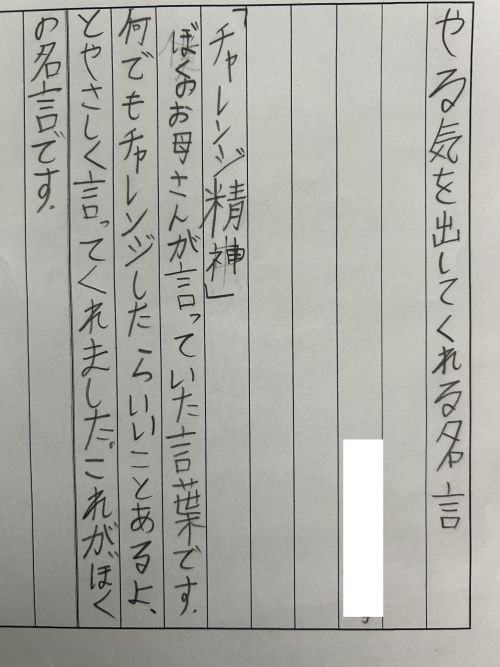 やる気を出してくれる名言
「チャレンジ精神」
ぼくのお母さんが言っていた言葉です.
何でもチャレンジしたらいいことあるよ、
とやさしく言ってくれました。これがぼく
の名言です.